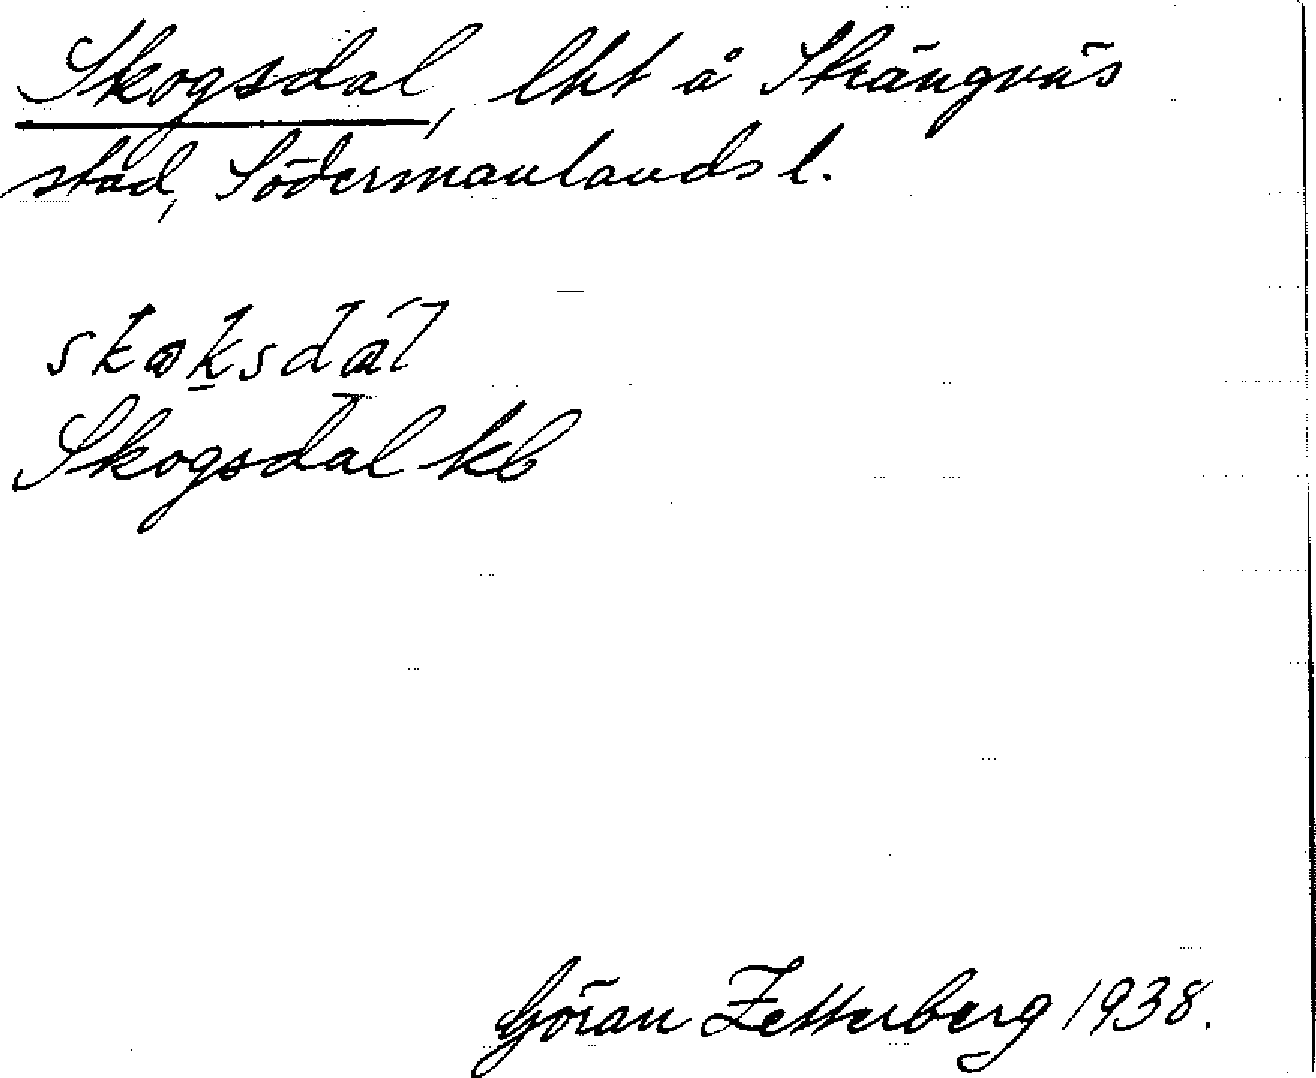 Skogsdal, lht å Strängnäs
stad, Södermanlands l.
skoksdál
Skogsdal kb
Göran Zetterberg 1938.